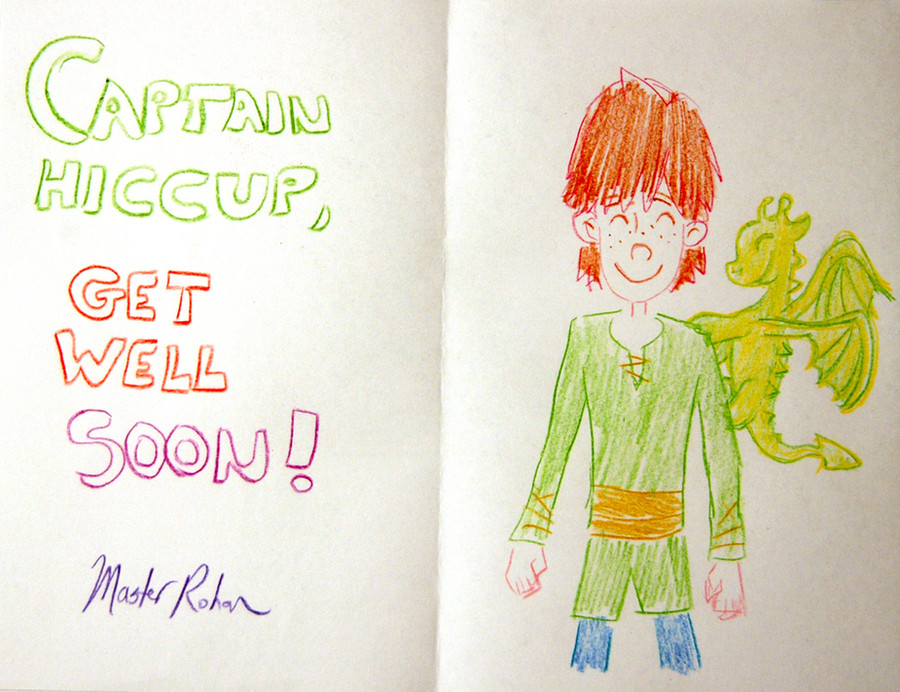 CAPTAIN
HICCUP,
GET
WELL
SOON!
Master Rohan